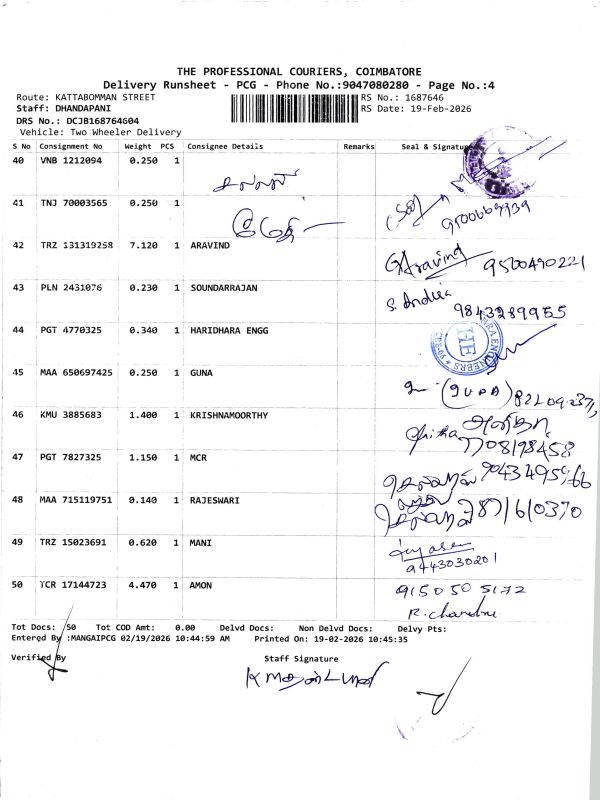 THE PROFESSIONAL COURIERS, COIMBATORE
Delivery Runsheet - PCG - Phone No.:9047080280 - Page No.:4
Route: KATTABOMMAN STREET RS No.: 1687646
Staff: DHANDAPANI RS Date: 19-Feb-2026
DRS No.: DCJB168764G04
Vehicle: Two Wheeler Delivery
S No Consignment No Weight PCS Consignee Details Remarks Seal & Signature
40 VNB 1212094 0.250 1
41 TNJ 70003565 0.250 1
42 TRZ 131319258 7.120 1 ARAVIND
G Aravind 9500490221
43 PLN 2431076 0.230 1 SOUNDARRAJAN
9843289955
44 PGT 4770325 0.340 1 HARIDHARA ENGG
HE
45 MAA 650697425 0.250 1 GUNA
46 KMU 3885683 1.400 1 KRISHNAMOORTHY
7708198458
47 PGT 7827325 1.150 1 MCR
48 MAA 715119751 0.140 1 RAJESWARI
49 TRZ 15023691 0.620 1 MANI
9443030201
50 TCR 17144723 4.470 1 AMON
9150505172
Tot Docs: 50 Tot COD Amt: 0.00 Delvd Docs: Non Delvd Docs: Delvy Pts:
Entered By :MANGAIPCG 02/19/2026 10:44:59 AM Printed On: 19-02-2026 10:45:35
Verified By Staff Signature